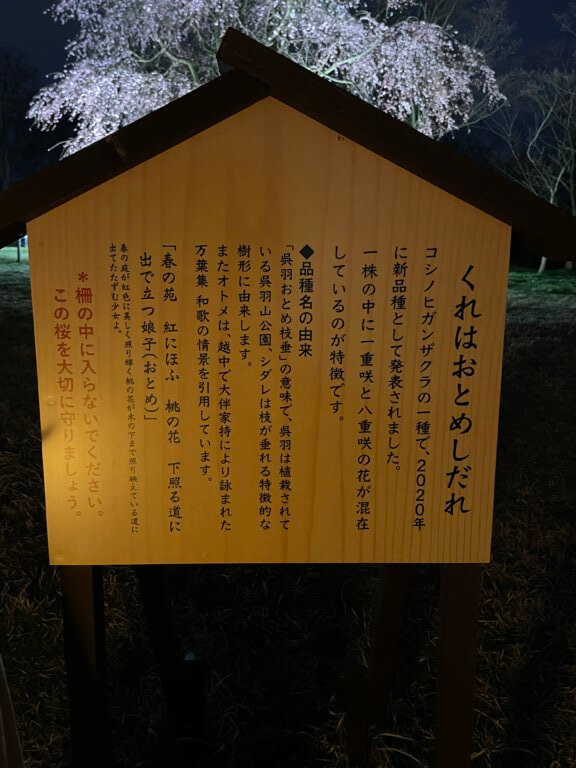 くれはおとめしだれ
コシノヒガンザクラの一種で、2020年
に新品種として発表されました。
一株の中に一重咲と八重咲の花が混在
しているのが特徴です。
◆品種名の由来
「呉羽おとめ枝垂」の意味で、呉羽は植栽されて
いる呉羽山公園、シダレは枝が垂れる特徴的な
樹形に由来します。
またオトメは、越中で大伴家持により詠まれた
万葉集 和歌の情景を引用しています。
「春の苑 紅にほふ 桃の花 下照る道に
出で立つ娘子(おとめ)」
春の庭が紅色に美しく照り輝く桃の花が木の下まで照り映えている道に
出てたたずむ少女よ。
*柵の中に入らないでください。
この桜を大切に守りましょう。